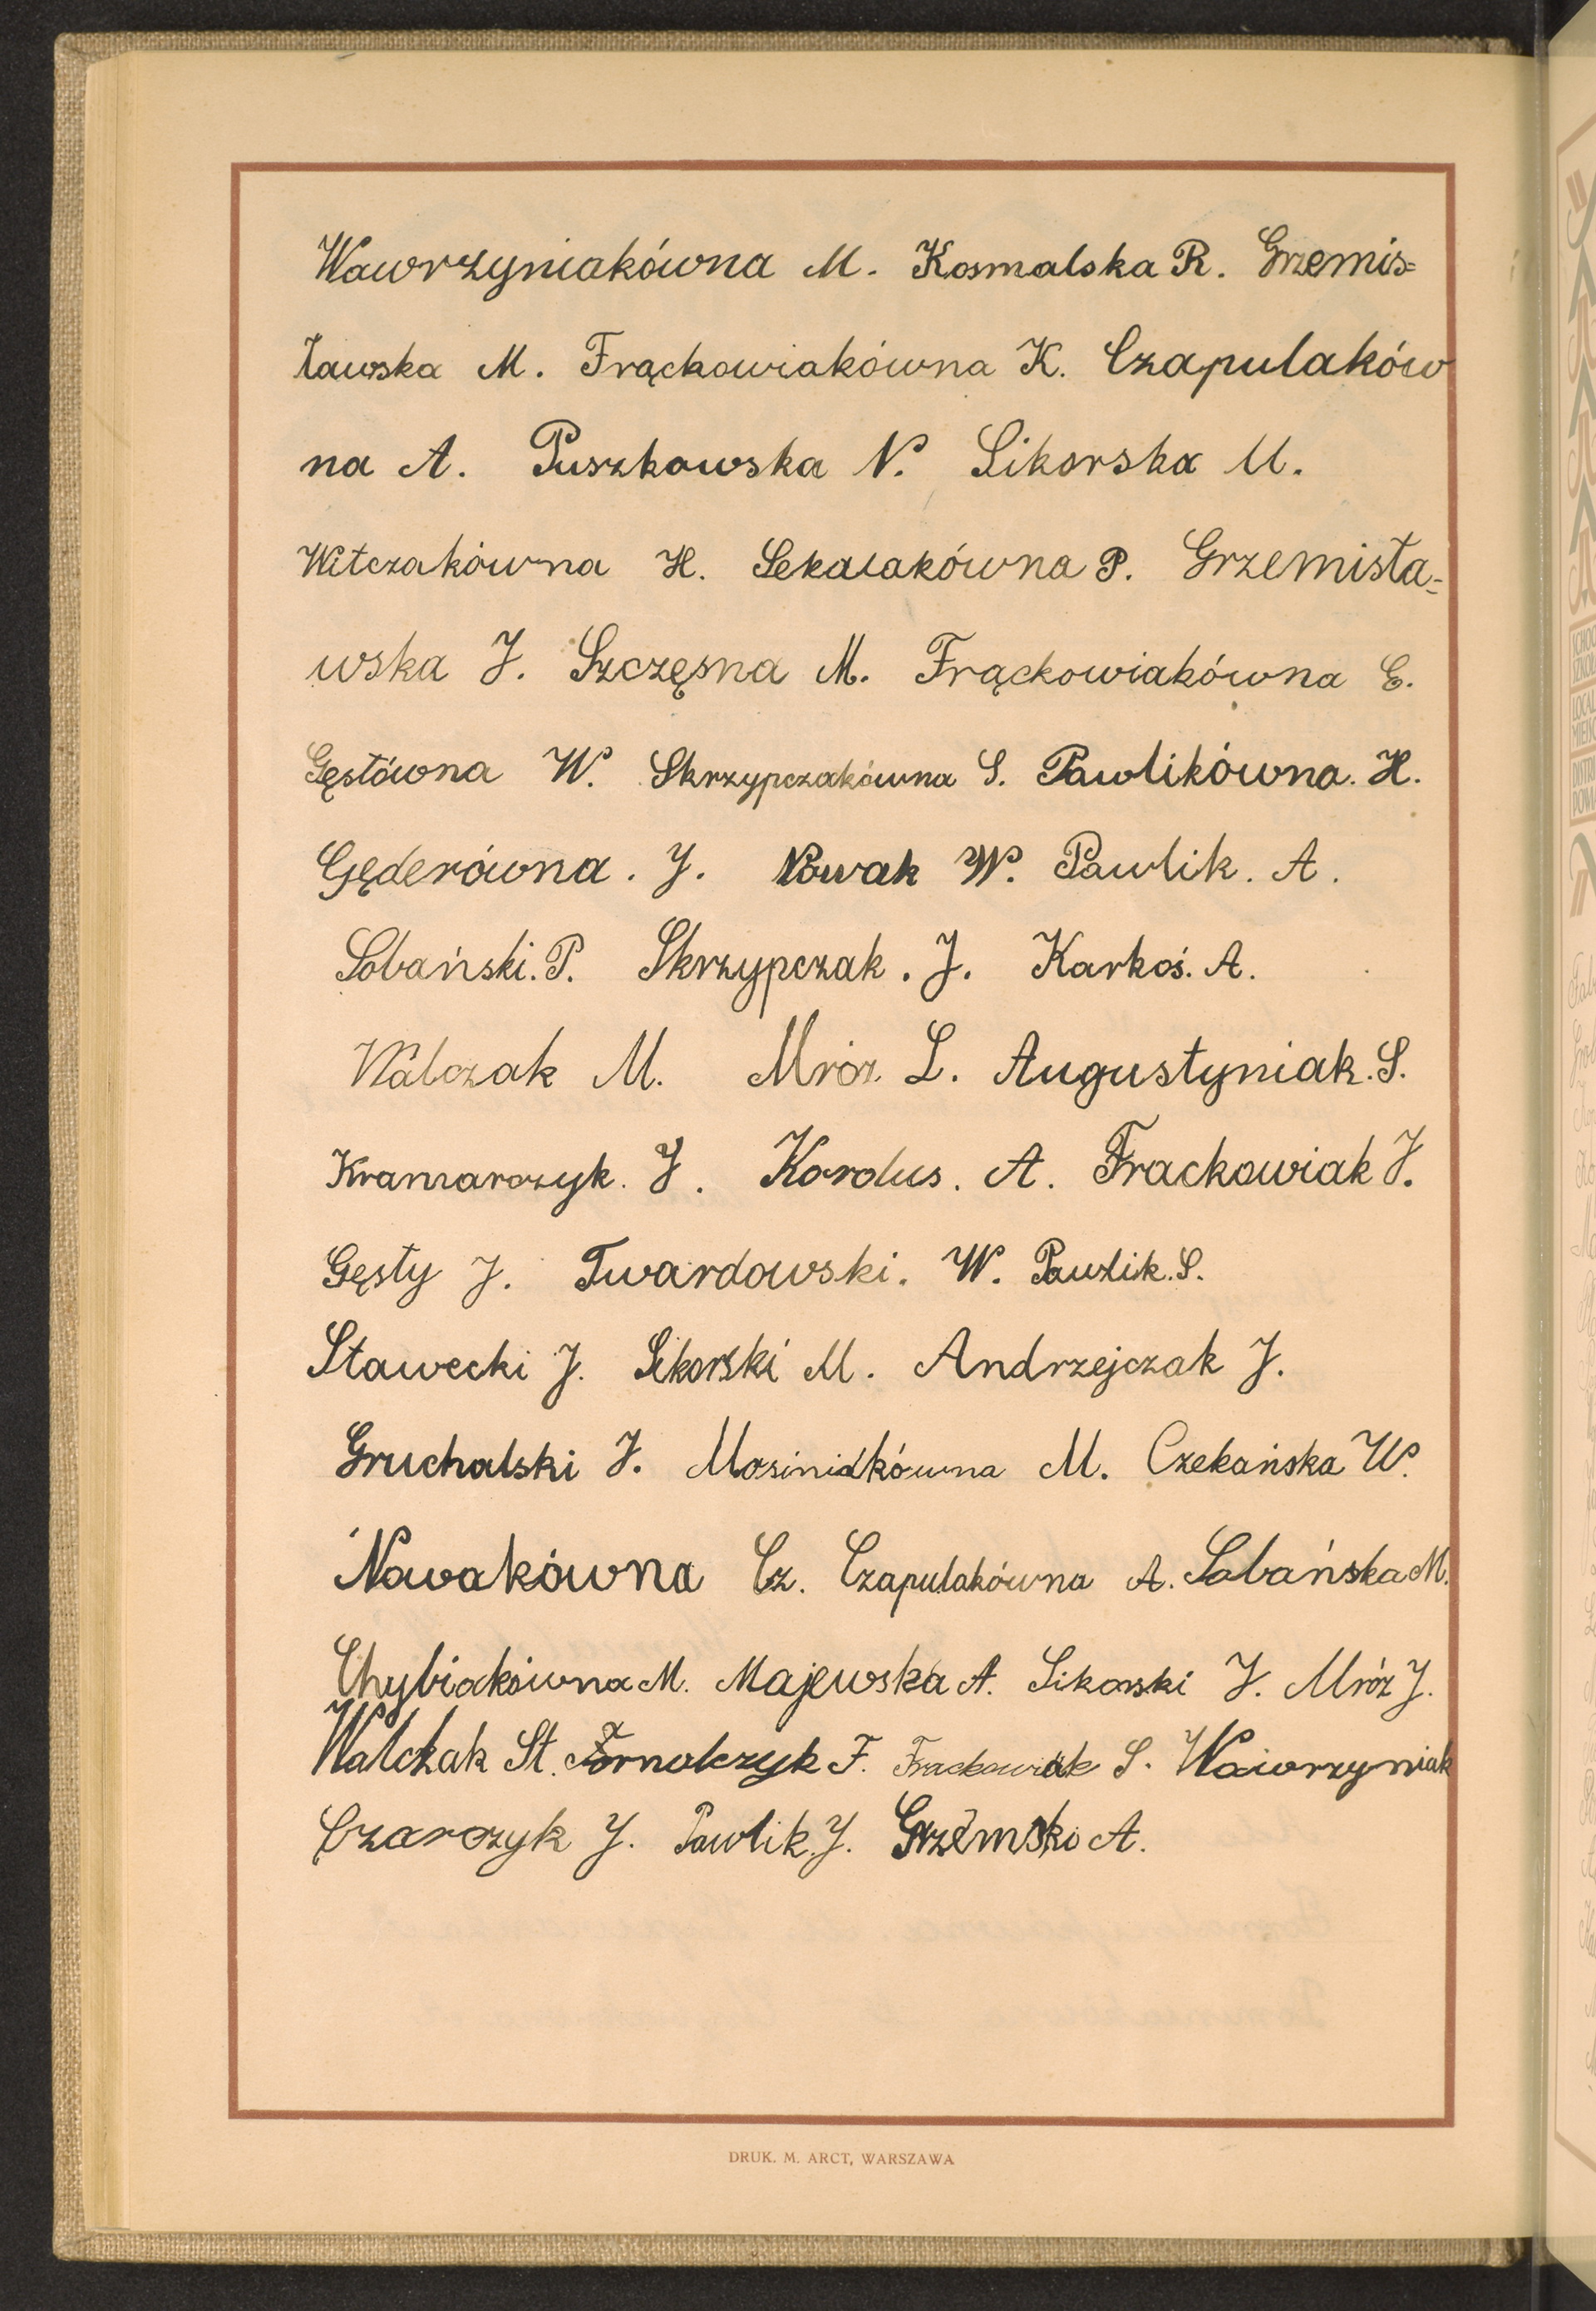 Wawrzyniakówna M. Kosmalska R. Grzemis=
ławska M. Frąckowiakówna K. Czapulaków
na A. Puszkowska N. Sikorska M.
Witczakówna H. Sekalakówna P. Grzemisła=
wska J. Szczęsna M. Frąckowiakówna E.
Gęstówna W. Skrzypczakówna S. Pawlikówna. H.
Gęderówna. J. Nowak W. Pawlik. A.
Sobański. P. Skrzypczak. J. Karkoś. A.
Walczak M. Mróz L. Augustyniak. S.
Kramarczyk. J. Kordus. A. Frackowiak J.
Gęsty J. Twardowski. W. Pawlik. S.
Stawecki J. Sikorski M. Andrzejczak J.
Gruchalski J. Mosiniakówna M. Czekańska W.
Nowakówna Cz. Czapulakówna A. Sobańska M.
Chybiakówna M. Majewska A. Sikorski J. Mróz J.
Walczak St. F. Frackowiak S. Wawrzyniak
Czarczyk J. Pawlik. J. A.
DRUK. M. ARCT, WARSZAWA